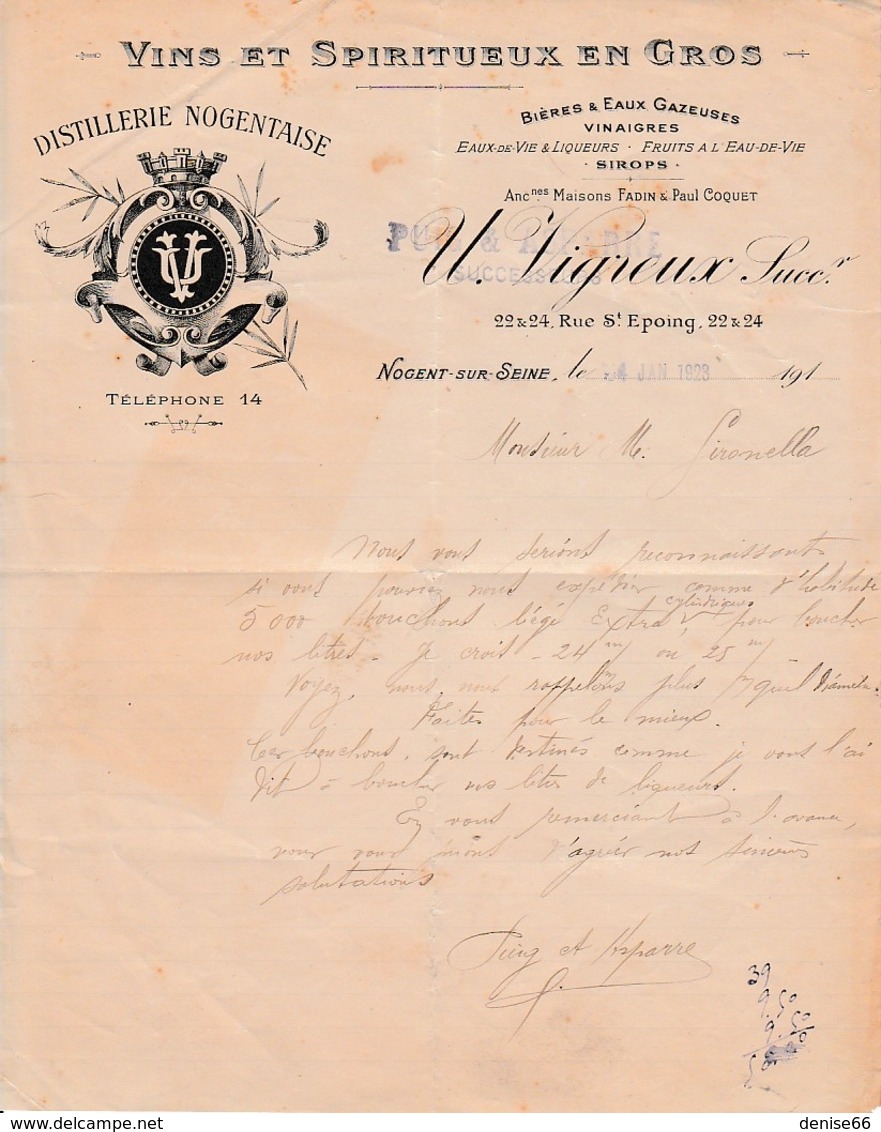 VINS ET SPIRITUEUX EN GROS
DISTILLERIE NOGENTAISE
TÉLÉPHONE 14
BIÈRES & EAUX GAZEUSES
VINAIGRES
EAUX-DE-VIE & LIQUEURS · FRUITS A L'EAU-DE-VIE
· SIROPS ·
Anc.nes Maisons FADIN & Paul COQUET
U. Vigreux Succ.r
SUCCESSEURS
22 & 24, Rue St Epoing, 22 & 24
NOGENT-SUR-SEINE, le 4 JAN 1923 191
Monsieur M. Gironella
Nous vous serions reconnaissants
si vous pouviez nous expédier comme d'habitude
5 000 bouchons liège Extra cylindriques, pour boucher
nos litres - Je crois - 24 m/ ou 25 m/
Voyez, nous nous rappelons plus quel diamètre
Faites pour le mieux.
Ces bouchons, sont destinés comme je vous l'ai
dit à boucher nos litres de liqueurs.
En vous remerciant à l'avance,
vous d'agréer nos sincères
salutations
Puig et Asparre
39
9.50
9.50
denise66